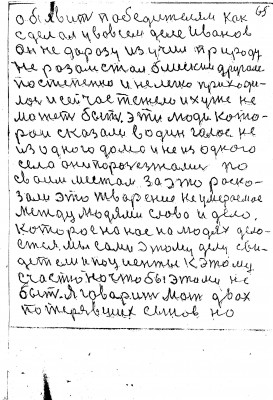 65
объявит победителям как
сделал у вовсем деле Иванов
он не даразу изучил природу
не разом стал близкий другам
постепенно и нелегко приходи-
лось и сейчас тяжело их уже не
может быть. эти люди кото-
рои сказали водин голос не
из одного дома и не из одного
села они поразъехали по
своим местам за это раско-
зали это тварение не умераемое
между людями слова и дело.
которое на нас на людях дело-
ется. мы сами этому делу сви-
детели и поциенты к этому
счастю но чтобы этому не
быт. я говарит мат двоих
потерявших сынов но